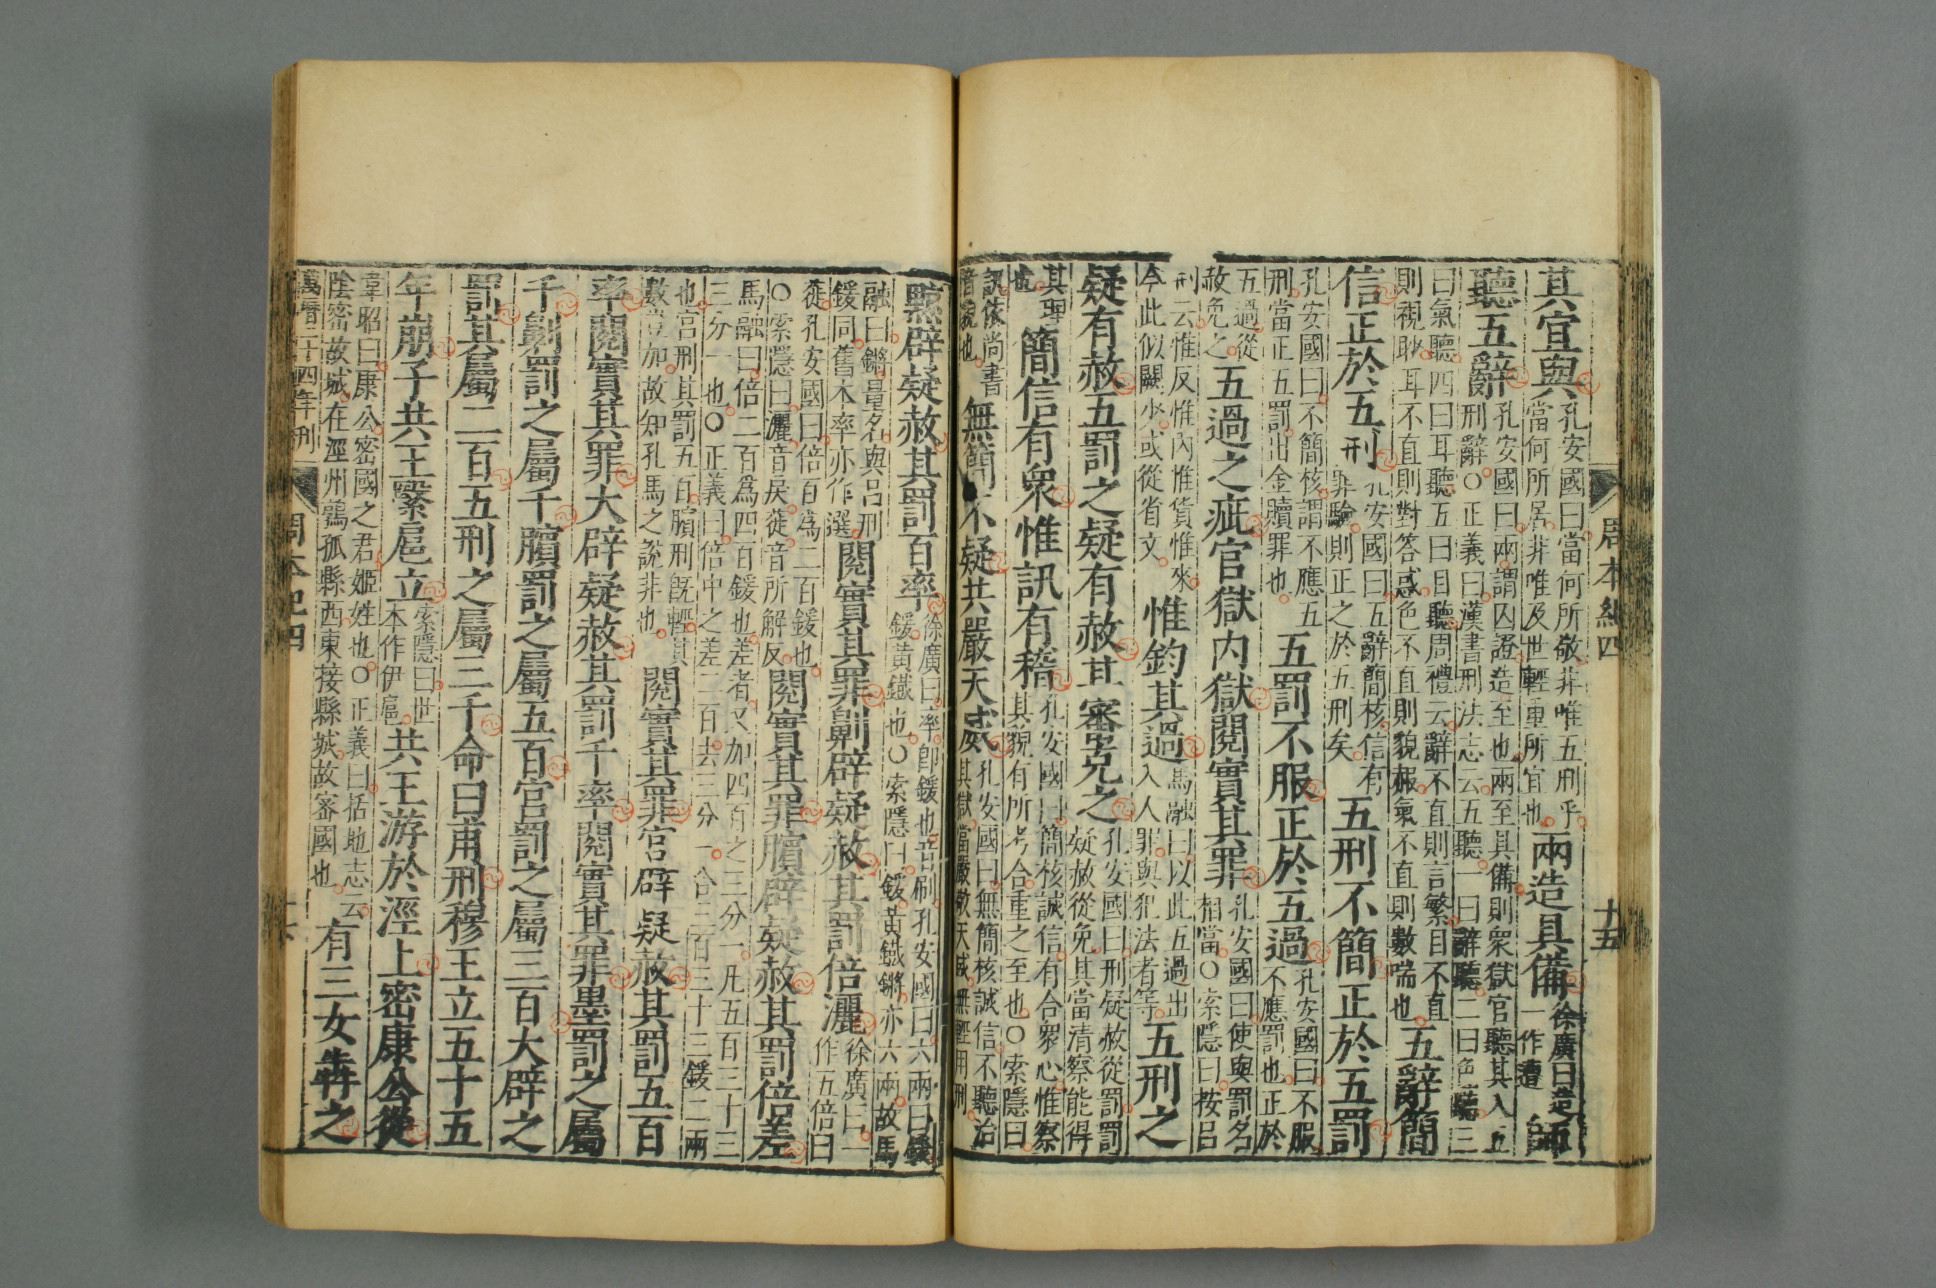 周本紀四 十五
其宜與孔安國曰當何所敬非唯五刑乎
當何所居非唯及世輕重所宜也兩造具備徐廣曰造
一作遭師
聽五辭孔安國曰兩謂囚證造至也兩至具備則衆獄官聽其入五
刑辭○正義曰漢書刑法志云五聽一曰辭聽二曰色聽三
曰氣聽四曰耳聽五曰目聽周禮云辭不直則言繁目不直
則視眊耳不直則對答惑色不直則貌赧氣不直則數喘也五辭簡
信正於五刑孔安國曰五辭簡核信有
罪驗則正之於五刑矣五刑不簡正於五罰
孔安國曰不簡核謂不應五
刑當正五罰出金贖罪也五罰不服正於五過孔安國曰不服
不應罰也正於
五過從
赦免之五過之疵官獄内獄閱實其罪孔安國曰使與罰名
相當○索隱曰按吕
刑云惟反惟内惟貨惟來
今此似闕少或從省文惟鈞其過馬融曰以此五過出
入人罪與犯法者等五刑之
疑有赦五罰之疑有赦其審克之孔安國曰刑疑赦從罰罰
疑赦從免其當清察能得
其理
也簡信有衆惟訊有稽孔安國曰簡核誠信有合衆心惟察
其貌有所考合重之至也○索隱曰
訊依尚書
音貌也無簡不疑共嚴天威孔安國曰無簡核誠信不聽治
其獄當嚴敬天威無輕用刑
黥辟疑赦其罰百率徐廣曰率即鍰也音刷孔安國曰六兩曰鍰
鍰黃鐵也○索隱曰鍰黃鐵鏘亦六兩故馬
融曰鏘量名與吕刑
鍰同舊本率亦作選閱實其罪劓辟疑赦其罰倍灑徐廣曰一
作五倍曰
蓰孔安國曰倍百為二百鍰也
○索隱曰灑音戾蓰音所解反閱實其罪臏辟疑赦其罰倍差
馬融曰倍二百爲四百鍰也差者又加四百之三分一凡五百三十三
三分一也○正義曰倍中之差二百去三分一合三百三十三鍰二兩
也宮刑其罰五百臏刑旣輕其
數豈加故知孔馬之說非也閱實其罪宮辟疑赦其罰五百
率閱實其罪大辟疑赦其罰千率閱實其罪墨罰之屬
千劓罰之屬千臏罰之屬五百宮罰之屬三百大辟之
罰其屬二百五刑之屬三千命曰甫刑穆王立五十五
年崩子共王繄扈立索隱曰世
本作伊扈共王游於涇上密康公從
韋昭曰康公密國之君姬姓也○正義曰括地志云
陰密故城在涇州鶉孤縣西東接縣城故密國也有三女犇之
萬曆二十四年刊 周本紀四 十六